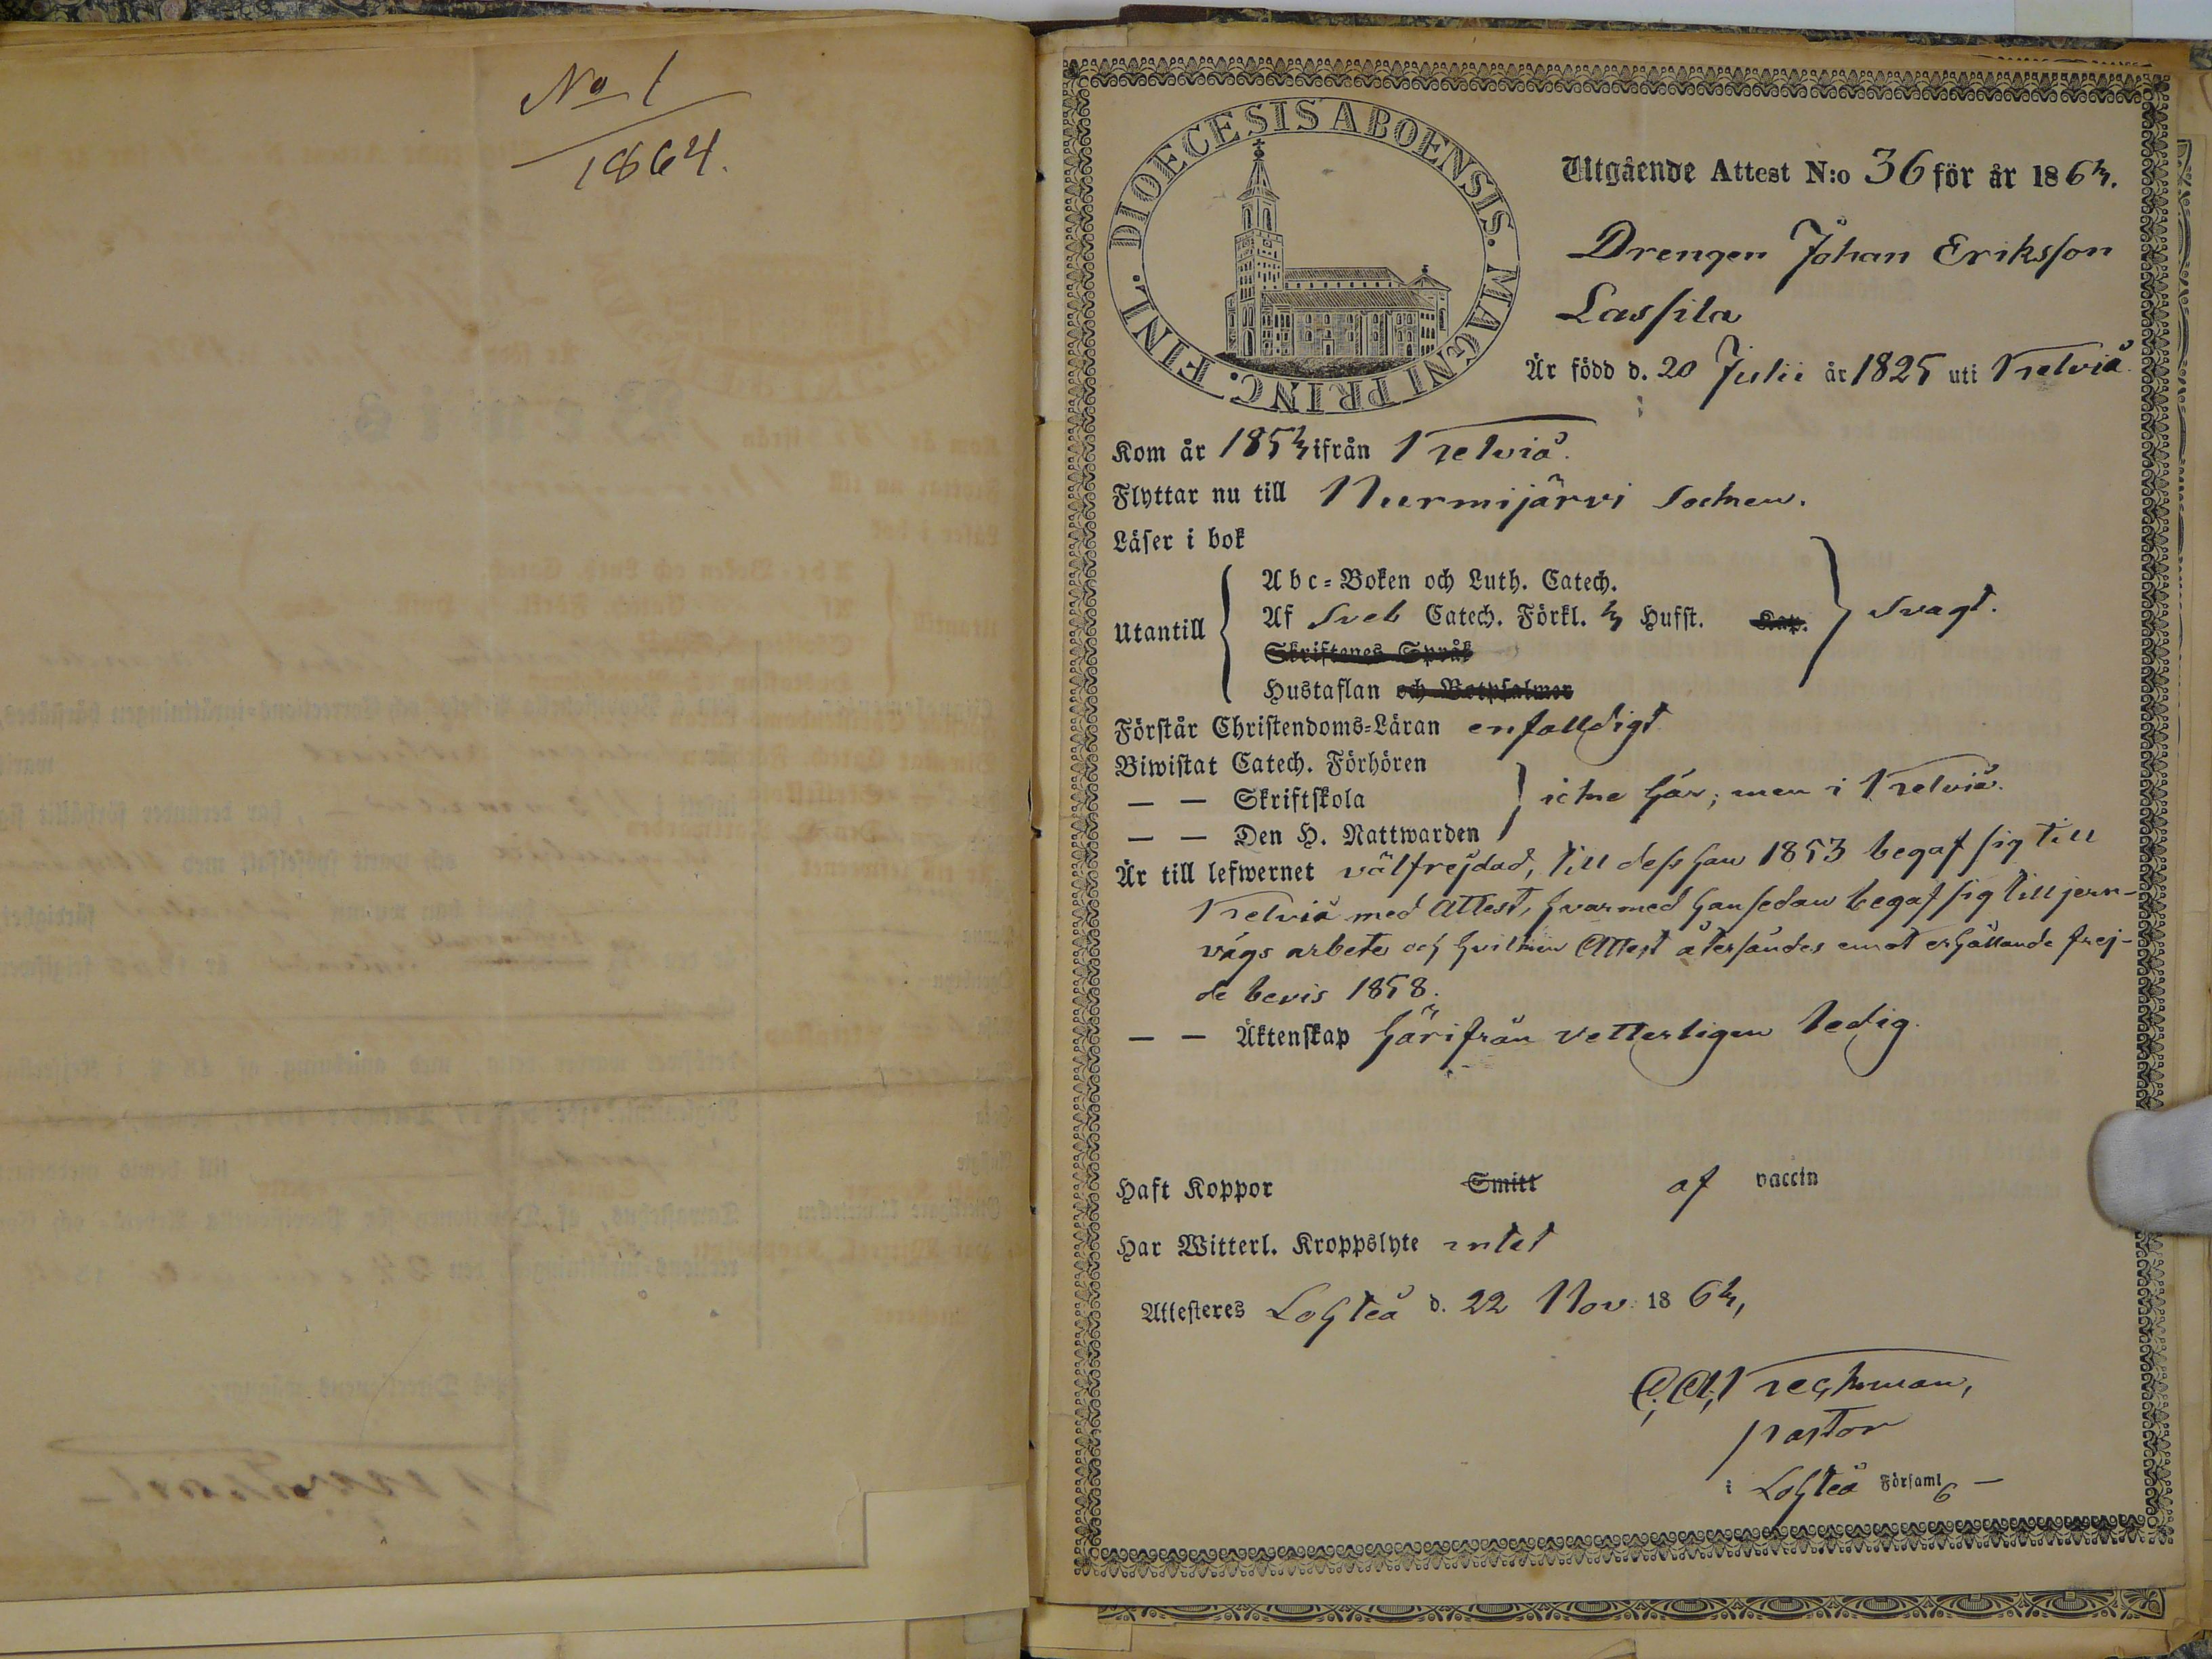 No 1
1864.
DIOECESIS ABOENSIS. MAGNI PRINC. FINL.
Utgående Attest N:o 36 för år 1863.
Drengen Johan Eriksson
Lassila
Är född d. 20 Julii år 1825 uti Kelviå
Kom år 1853 ifrån Kelviå.
Flyttar nu till Nurmijärvi Socken.
Läser i bok
Utantill
Abc-Boken och Luth. Catech.
Af Sveb Catech. Förkl. 3 Hufst. Kap.
Skriftenes Språk
Hustaflan och Botpsalmer
Svagt.
Förstår Christendoms-Läran enfalldigt
Biwistat Catech. Förhören
— — Skriftskola
— — Den H. Nattwarden
icke här; men i Kelviå.
Är till lefwernet välfrejdad, till dess han 1853 begaf sig till
Kelviå med Attest, hvarmed han sedan begaf sig till jern-
vägs arbete och hvilken Attest återsändes emot erhållande frej-
de bevis 1858.
— — Äktenskap härifrån vetterligen ledig.
Haft Koppor Smitt af vaccin
Har Witterl. Kroppslyte intet
Attesteres Lohteå d. 22 Nov. 1863,
pastor
i Lohteå Församl